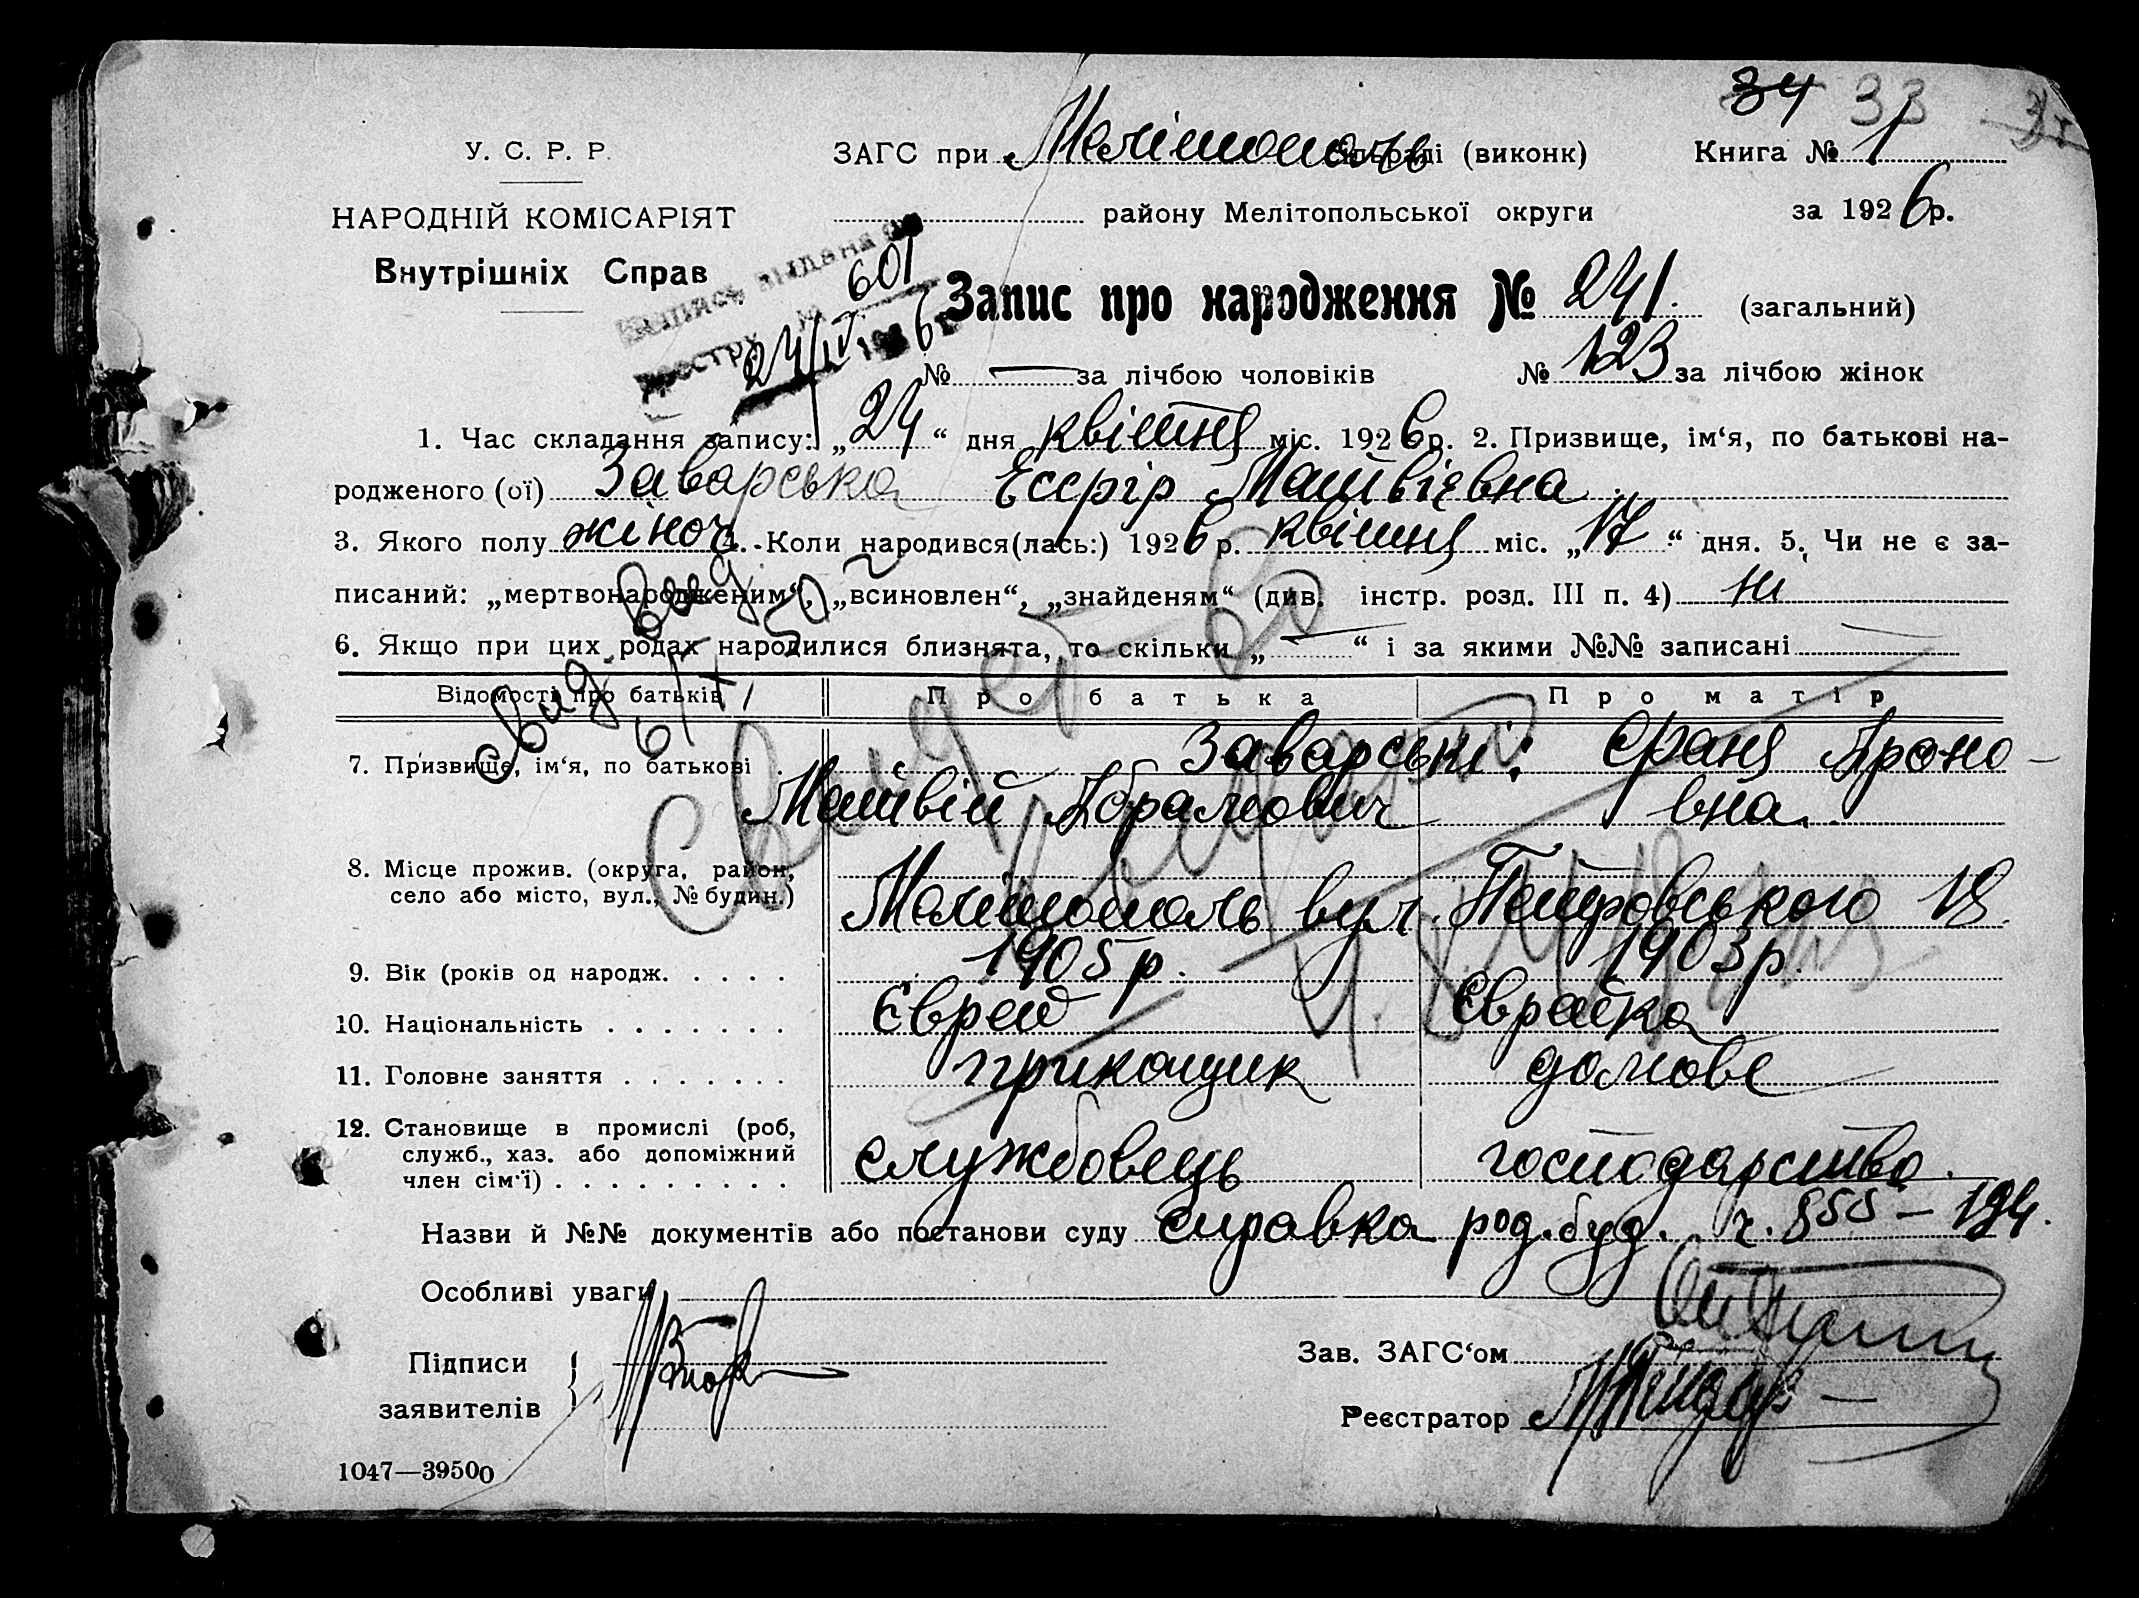 34 33
У. С. Р. Р. ЗАГС при Мелітополь міськраді (виконк) Книга № 1
НАРОДНІЙ КОМІСАРІЯТ району Мелітопольської округи за 1926 р.
Внутрішніх Справ
Запись выдана
реестру № 601
24/IV 1926 г.
Запис про народження № 241. (загальний)
№ — за лічбою чоловіків № 123 за лічбою жінок
1. Час складання запису: „24“ дня квітня міс. 1926 р. 2. Призвище, ім‘я, по батькові на-
родженого (ої) Заварська Есєрір Матвієвна
3. Якого полу жіноч. 4. Коли народився(лась:) 1926 р. квітня міс. „17“ дня. 5. Чи не є за-
писаний: „мертвонародженим“, „всиновлен“, „знайденям“ (див. інстр. розд. III п. 4) ні
6. Якщо при цих родах народилися близнята, то скільки „—“ і за якими №№ записані
Відомості про батьків Про батька Про матір
7. Призвище, ім‘я, по батькові Заварські: Франя Ароно-
Матвій Абрамович вна.
8. Місце прожив. (округа, район,
село або місто, вул., № будин.) Мелітополь вул. Петровського 18.
9. Вік (років од народж. 1905 р. 1903 р.
10. Національність Єврей Єврейка
11. Головне заняття прикащик домове
12. Становище в промислі (роб,
служб., хаз. або допоміжний
член сім‘ї) службовець господарство.
Назви й №№ документів або постанови суду справка род. буд. ч. 855 — 194.
Особливі уваги
Підписи
заявителів
Зав. ЗАГС‘ом
Реєстратор
1047—39500